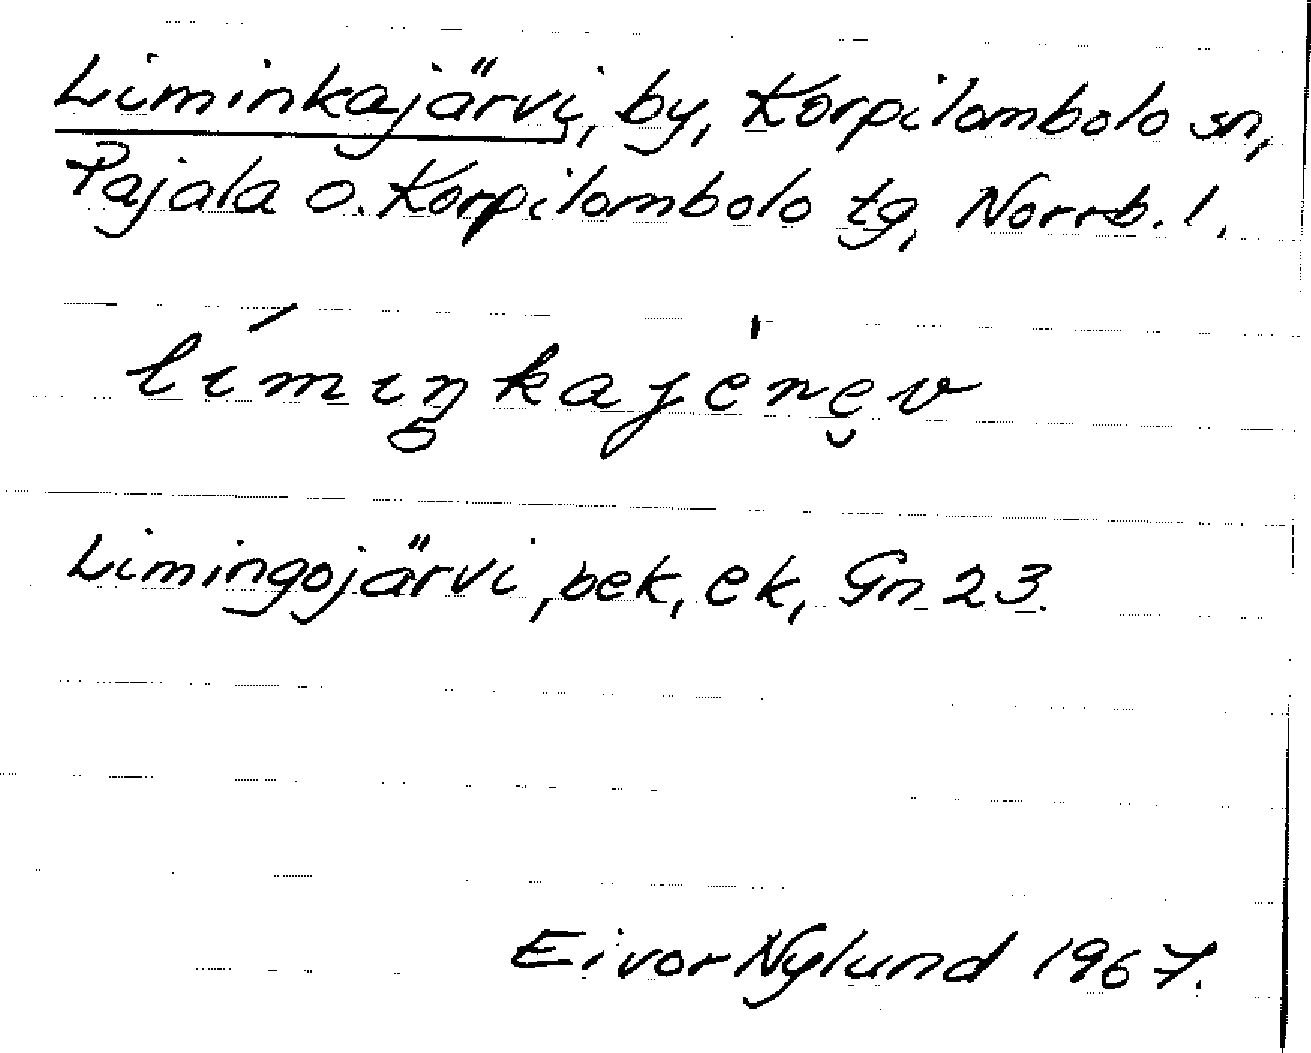 Liminkajärvi, by, Korpilombolo sn,
Pajala o. Korpilombolo tg, Norrb. l.
Limingojärvi, bek, ek, Gn 23.
Eivor Nylund 1967.